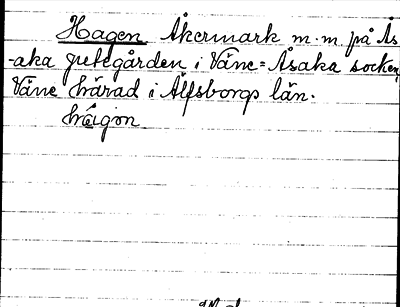 Hagen Åkermark m.m. på Ås
-aka gretegården i Väne=Åsaka socken,
Väne härad i Älfsborgs län.